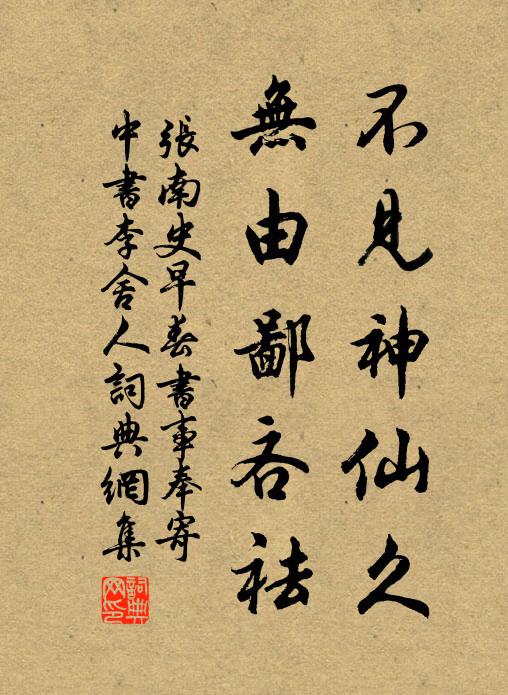 不見神仙久
無由鄙吝祛
張南史早春書事奉寄
中書李舍人詞典網集
詞典
网印